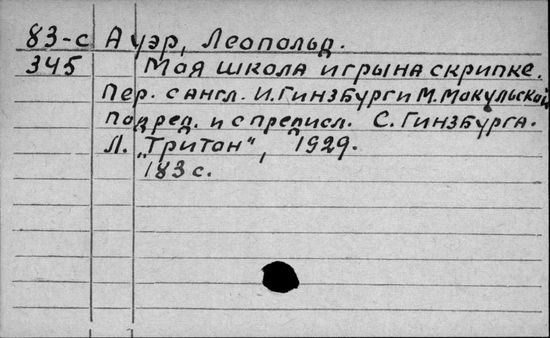 83-с Ауэр, Леопольд.
345 Моя школа игры на скрипке.
Пер. с англ. И. Гинзбург и М. Мокульской
под ред. и с предисл. С. Гинзбурга.
Л. „Тритон", 1929.
183 с.